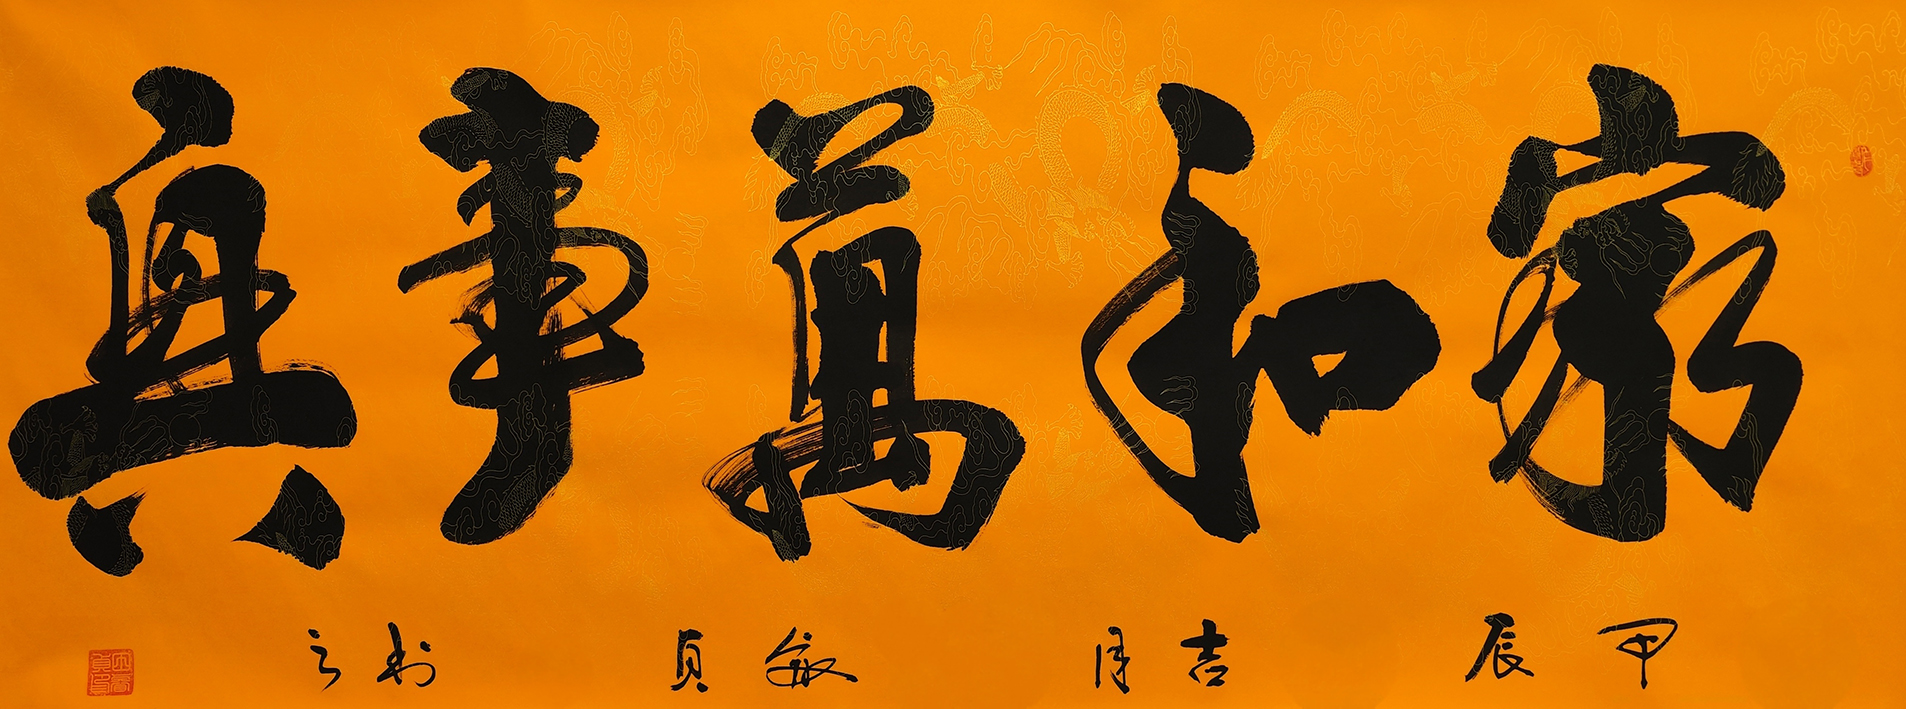 家和萬事興
甲辰吉月敏貞書之